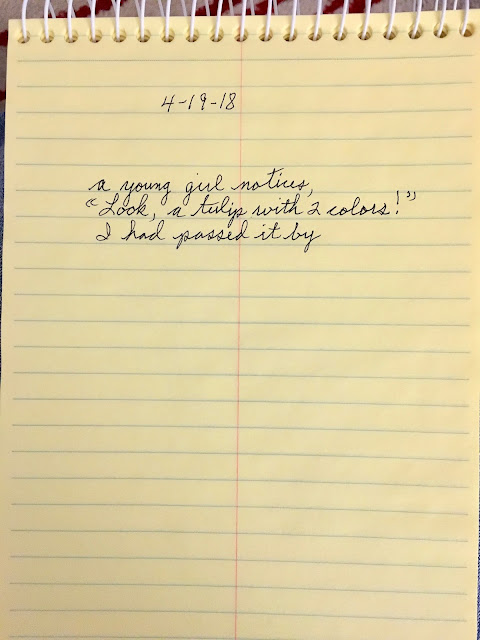 4-19-18
a young girl notices,
"Look, a tulip with 2 colors!"
I had passed it by